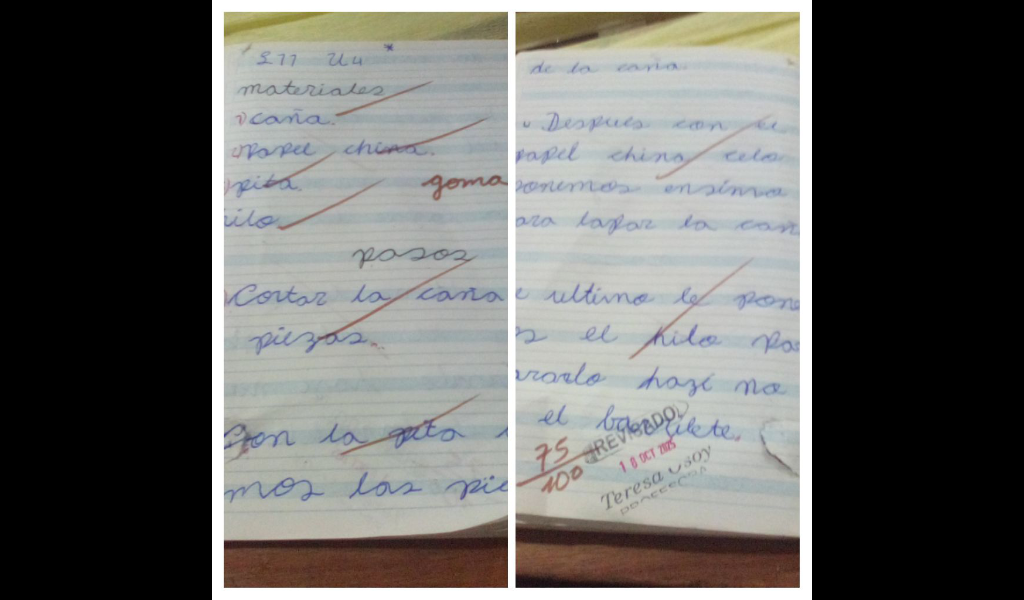 U4
materiales
caña.
papel china.
pita.
goma
hilo
pasos
Cortar la caña
piezas.
Con la pita
mos las pie
de la caña.
Despues con el
papel china celo
ponemos ensima
ara tapar la cañ
e ultimo le pone
s el hilo pa
rarlo hazi no
el barrilete.
75
100
REVISADO
18 OCT 2025
Teresa Osoy
PROFESORA